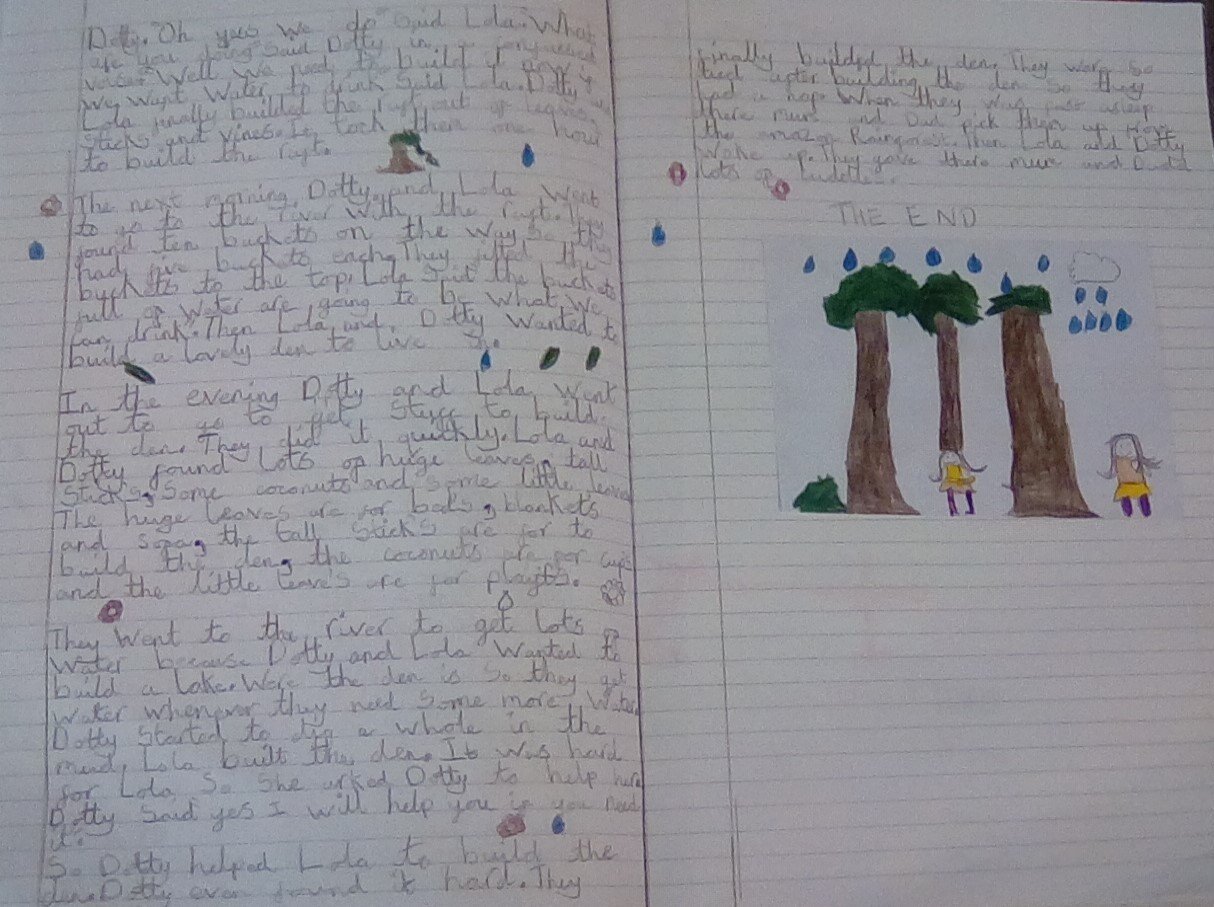 Dotty. Oh yes we do said Lola. What
are you doing said Dotty in a
voice. Well we need to build it
we want water to drink said Lola. Dotty
Lola finally builded the raft out of
sticks and vines. It took them one hour
to build the raft.
The next morning, Dotty and Lola went
to go to the river with the raft. They
found ten buckets on the way so they
had five buckets each. They lifted the
buckets to the top. Lola said the buckets
full of water are going to be what we
can drink. Then Lola and Dotty wanted to
build a lovely den to live in.
In the evening Dotty and Lola went
out to go to get stuff to build
the den. They did it quickly. Lola and
Dotty found lots of huge leaves, tall
sticks, some coconuts and some little leaves
The huge leaves are for beds, blankets
and sofa, the tall sticks are for to
build the den, the coconuts are for cups
and the little leave's are for playts.
They went to the river to get lots of
water because Dotty and Lola wanted to
build a lake. Were the den is so they get
water whenever they need some more. Water
Dotty started to dig a whole in the
mud, Lola built the den. It was hard
for Lola so she asked Dotty to help her
Dotty said yes I will help you if you need
it.
So Dotty helped Lola to build the
den. Dotty even found it hard. They
finally builded the den. They were so
tied after building the den so they
had a nap. When they was fast asleep
there mum and Dad pick them up from
the amazon Rainforest. Then Lola and Dotty
wake up. They gave there mum and Dad
lots of
THE END